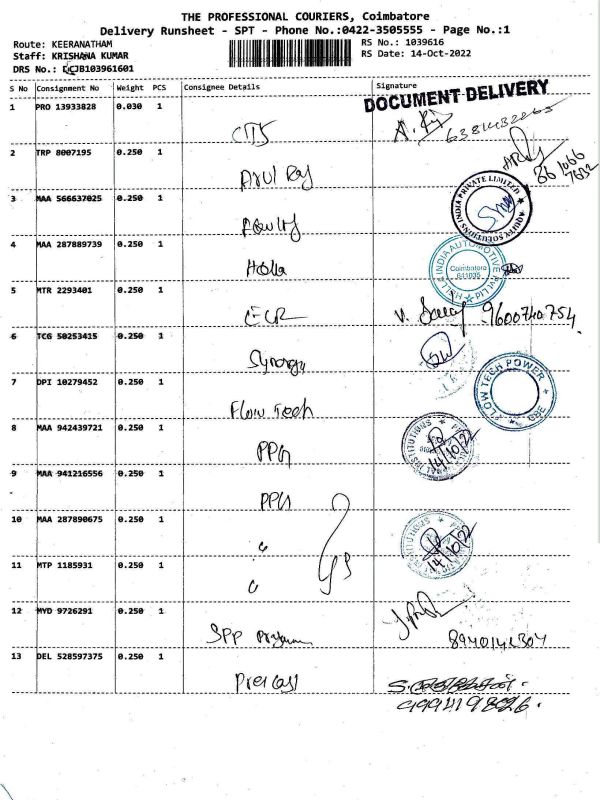 THE PROFESSIONAL COURIERS, Coimbatore
Delivery Runsheet - SPT - Phone No.:0422-3505555 - Page No.:1
Route: KEERANATHAM
RS No.: 1039616
Staff: KRISHANA KUMAR
RS Date: 14-Oct-2022
DRS No.: JB103961601
S No Consignment No Weight PCS Consignee Details Signature
DOCUMENT DELIVERY
1 PRO 13933828 0.030 1
CTS
2 TRP 8007195 0.250 1
Arul Raj
3 MAA 566637025 0.250 1
EQUITY SOLUTIONS INDIA PRIVATE LIMITED
4 MAA 287889739 0.250 1
Halla
HALLA INDIA AUTOMOTIVE PVT LTD
Coimbatore
641035
5 MTR 2293401 0.250 1
9600740754
6 TCG 50253415 0.250 1
Synergy
7 DPI 10279452 0.250 1
Flow Tech
FLOW TECH POWER
CBE
8 MAA 942439721 0.250 1
PPG
INSTITUTIONS
14/10/22
9 MAA 941216556 0.250 1
PPG
10 MAA 287890675 0.250 1
"
INSTITUTIONS
14/10/22
11 MTP 1185931 0.250 1
"
12 MYD 9726291 0.250 1
SPP
8940142304
13 DEL 528597375 0.250 1
Precast
9994198826.